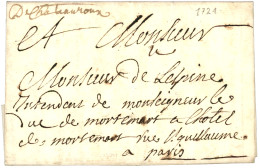 De Chateauroux
1721
A Monsieur
Monsieur de Lespine
Intendent de monseigneur le
duc de mortemart a Lhotel
de mortemart rue St guillaume
a paris